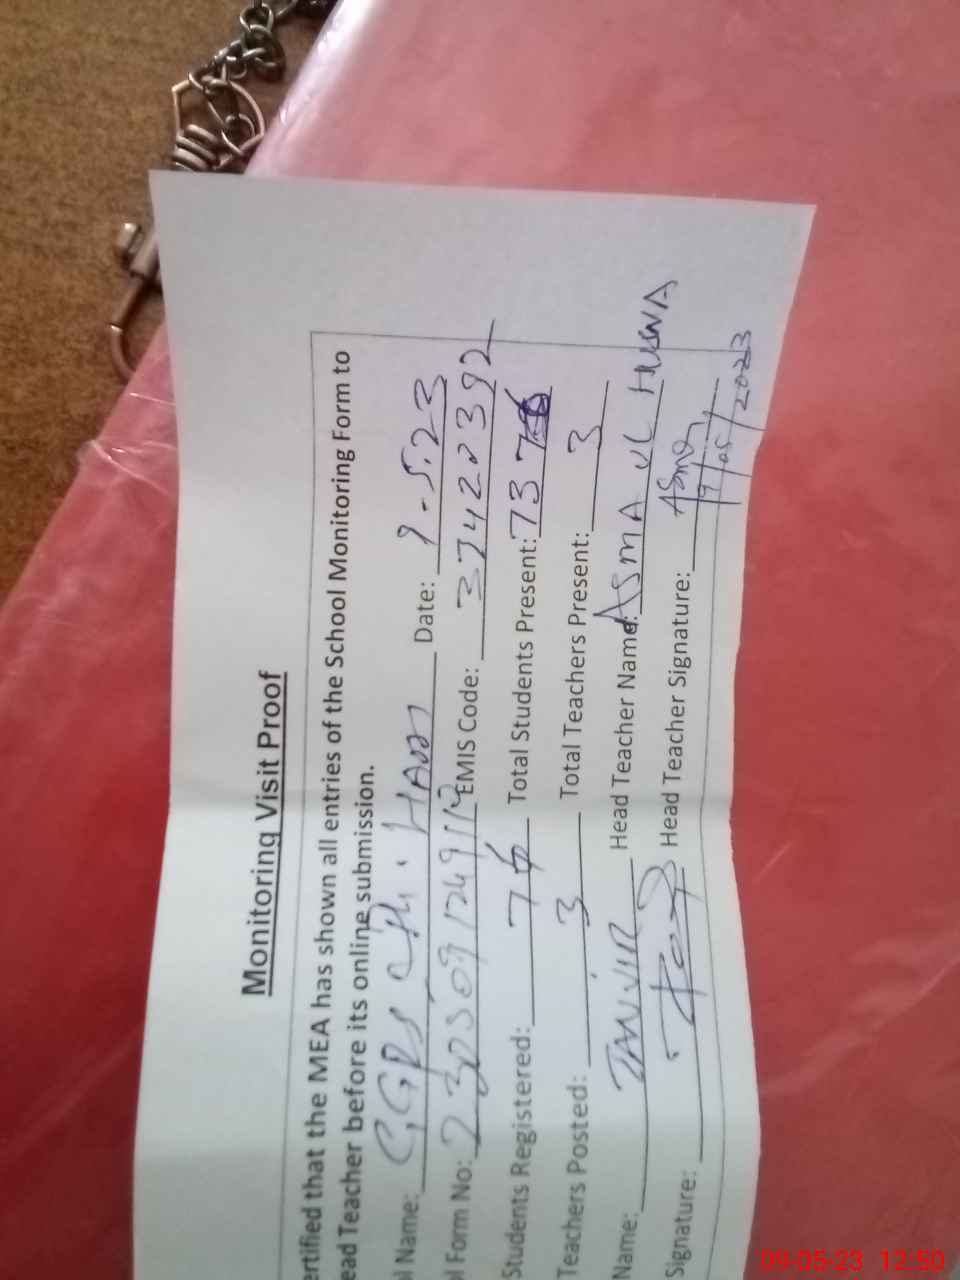 Monitoring Visit Proof
ertified that the MEA has shown all entries of the School Monitoring Form to
ead Teacher before its online submission.
l Name: GGPS Ch. Date: 9-5.23
l Form No: EMIS Code: 37420392
Students Registered: 76 Total Students Present: 73
Teachers Posted: 3 Total Teachers Present: 3
Name: TANVIR Head Teacher Name: ASMA UL HUSNA
Signature: Head Teacher Signature: Asma
9/05/2023
09-05-23 12:50